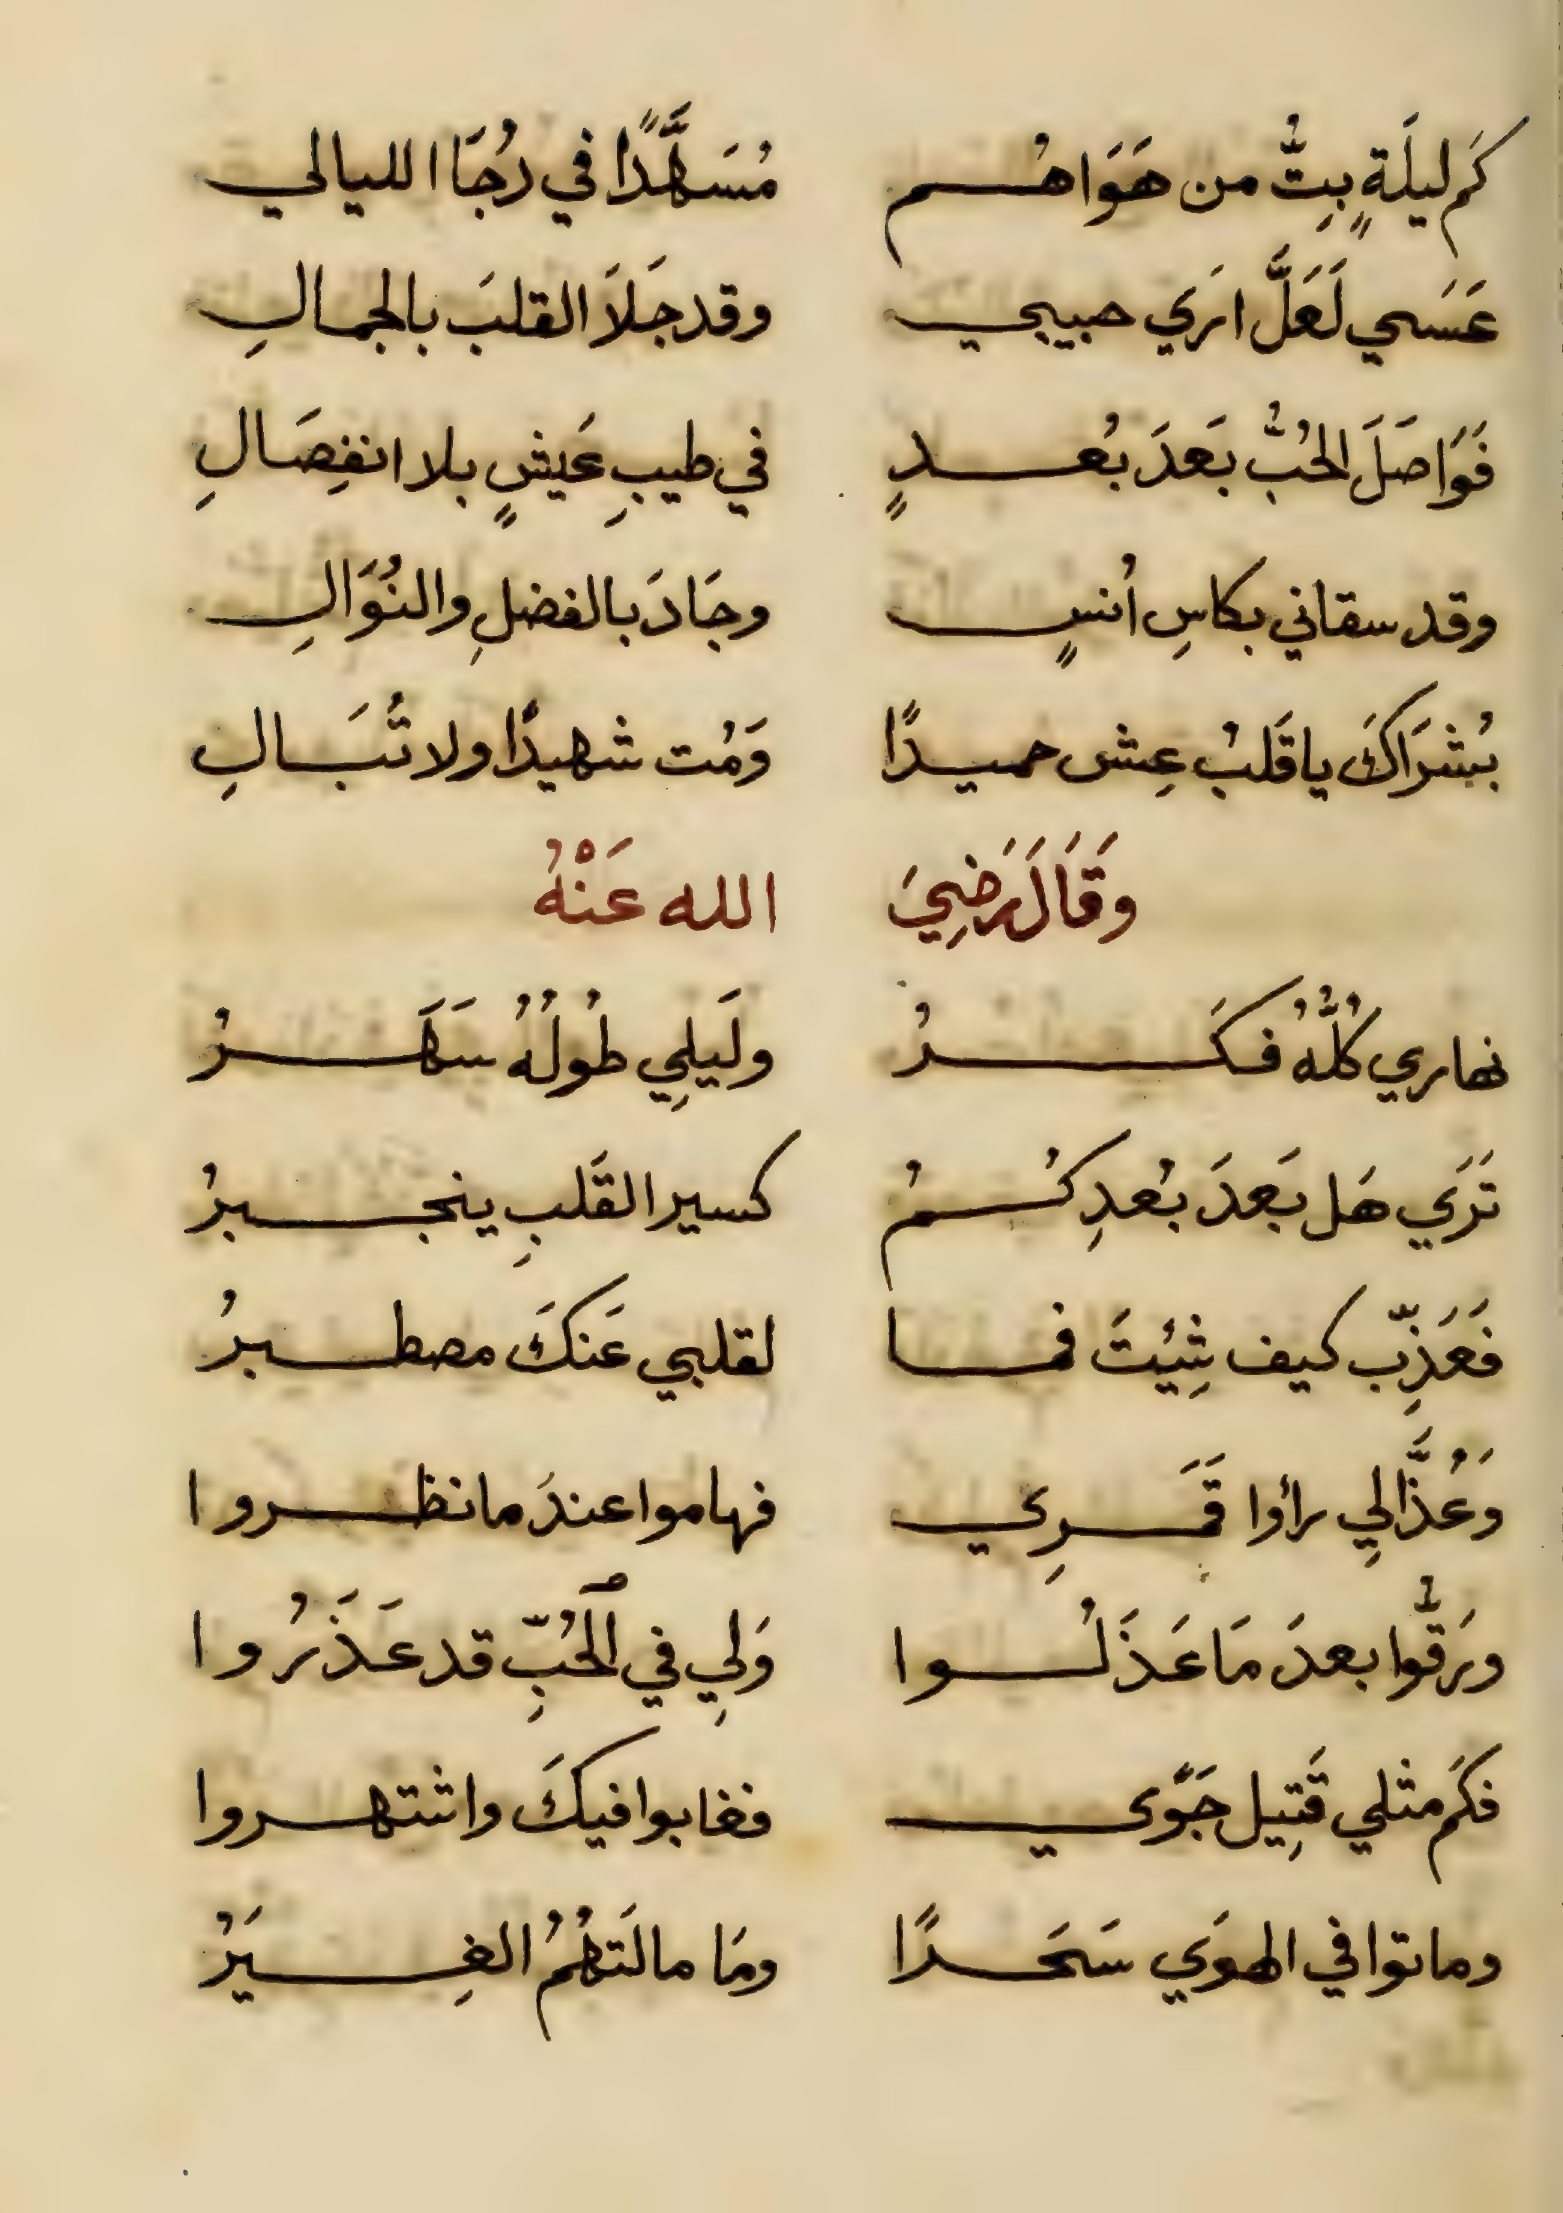 كَم ليلَةٍ بِتُّ من هَوَاهُم مُسَهَّدًا في دُجَا الليالي
عَسَي لَعَلَّ ارَي حبيبي وقد جَلَا القلبَ بالجمالِ
فَوَاصَلَ الحُبُّ بَعدَ بُعدٍ في طيبِ عَيشٍ بلا انفِصَالِ
وقد سقاني بكاسِ اُنسٍ وجَادَ بالفضلِ والنُوَالِ
بُشرَاكَ يا قَلبُ عِش حميدًا وَمُت شهيدًا ولا تُبَالِ
وَقَالَ رَضِيَ الله عَنْهُ
نهاري كُلُّهُ فكَرُ ولَيلِي طُولُهُ سَهَرُ
تَرَي هَل بَعدَ بُعدِكُمُ كسير القَلبِ ينجبرُ
فَعَذِّب كيف شِئتَ فما لقلبي عَنكَ مصطبرُ
وَعُذَّالِي رأوا قَمَرِي فهاموا عندَ ما نظروا
ورَقُّوا بعدَ مَا عَذَلُوا وَلِي في الحُبِّ قد عَذَرُوا
فكَم مثلي قَتِيل جَوًي فغابوا فيكَ واشتهروا
وماتوا في الهوَي سَحَرًا ومَا مالَتهُمُ الغِيَرُ